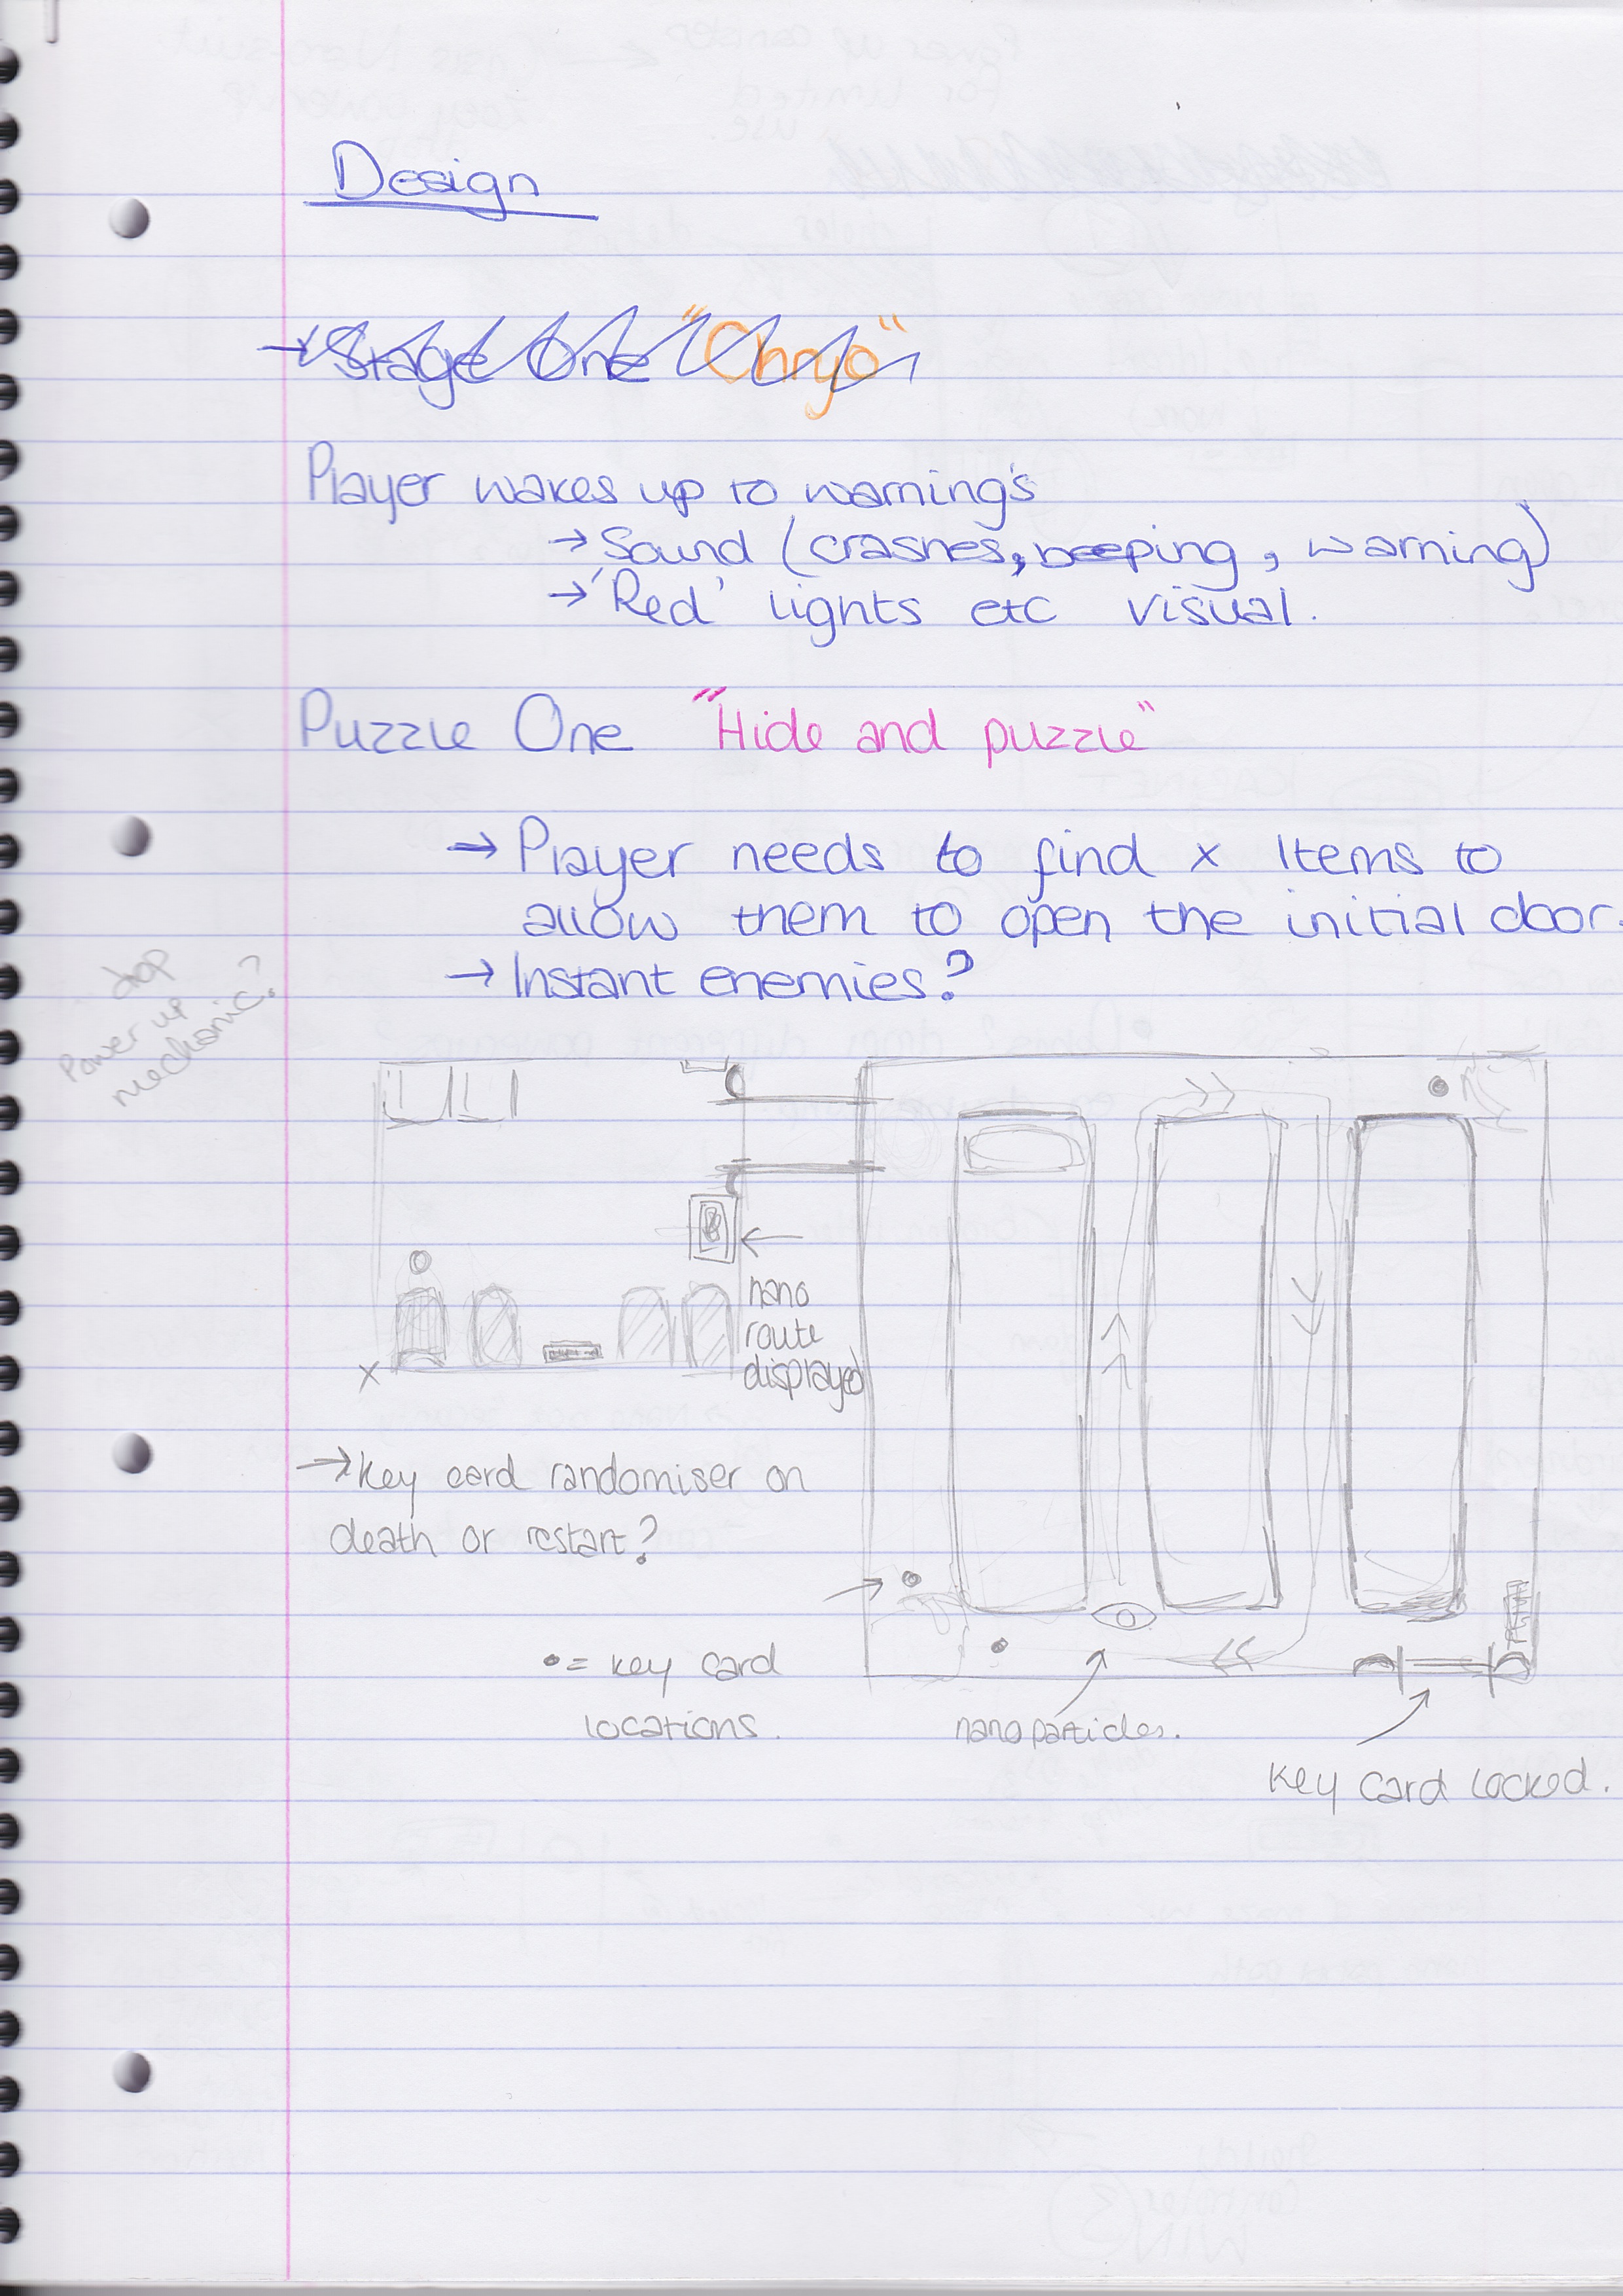 Design
→ Stage One "Chryo"
Player wakes up to warning's
→ Sound (crashes, beeping, warning)
→ 'Red' lights etc visual.
Puzzle One "Hide and puzzle"
→ Player needs to find x Items to
allow them to open the initial door.
→ Instant enemies?
drop
Power up
mechanic?
nano
route
displayed
x
→ Key card randomiser on
death or restart?
• = Key card
locations.
nano particles.
Key card locked.